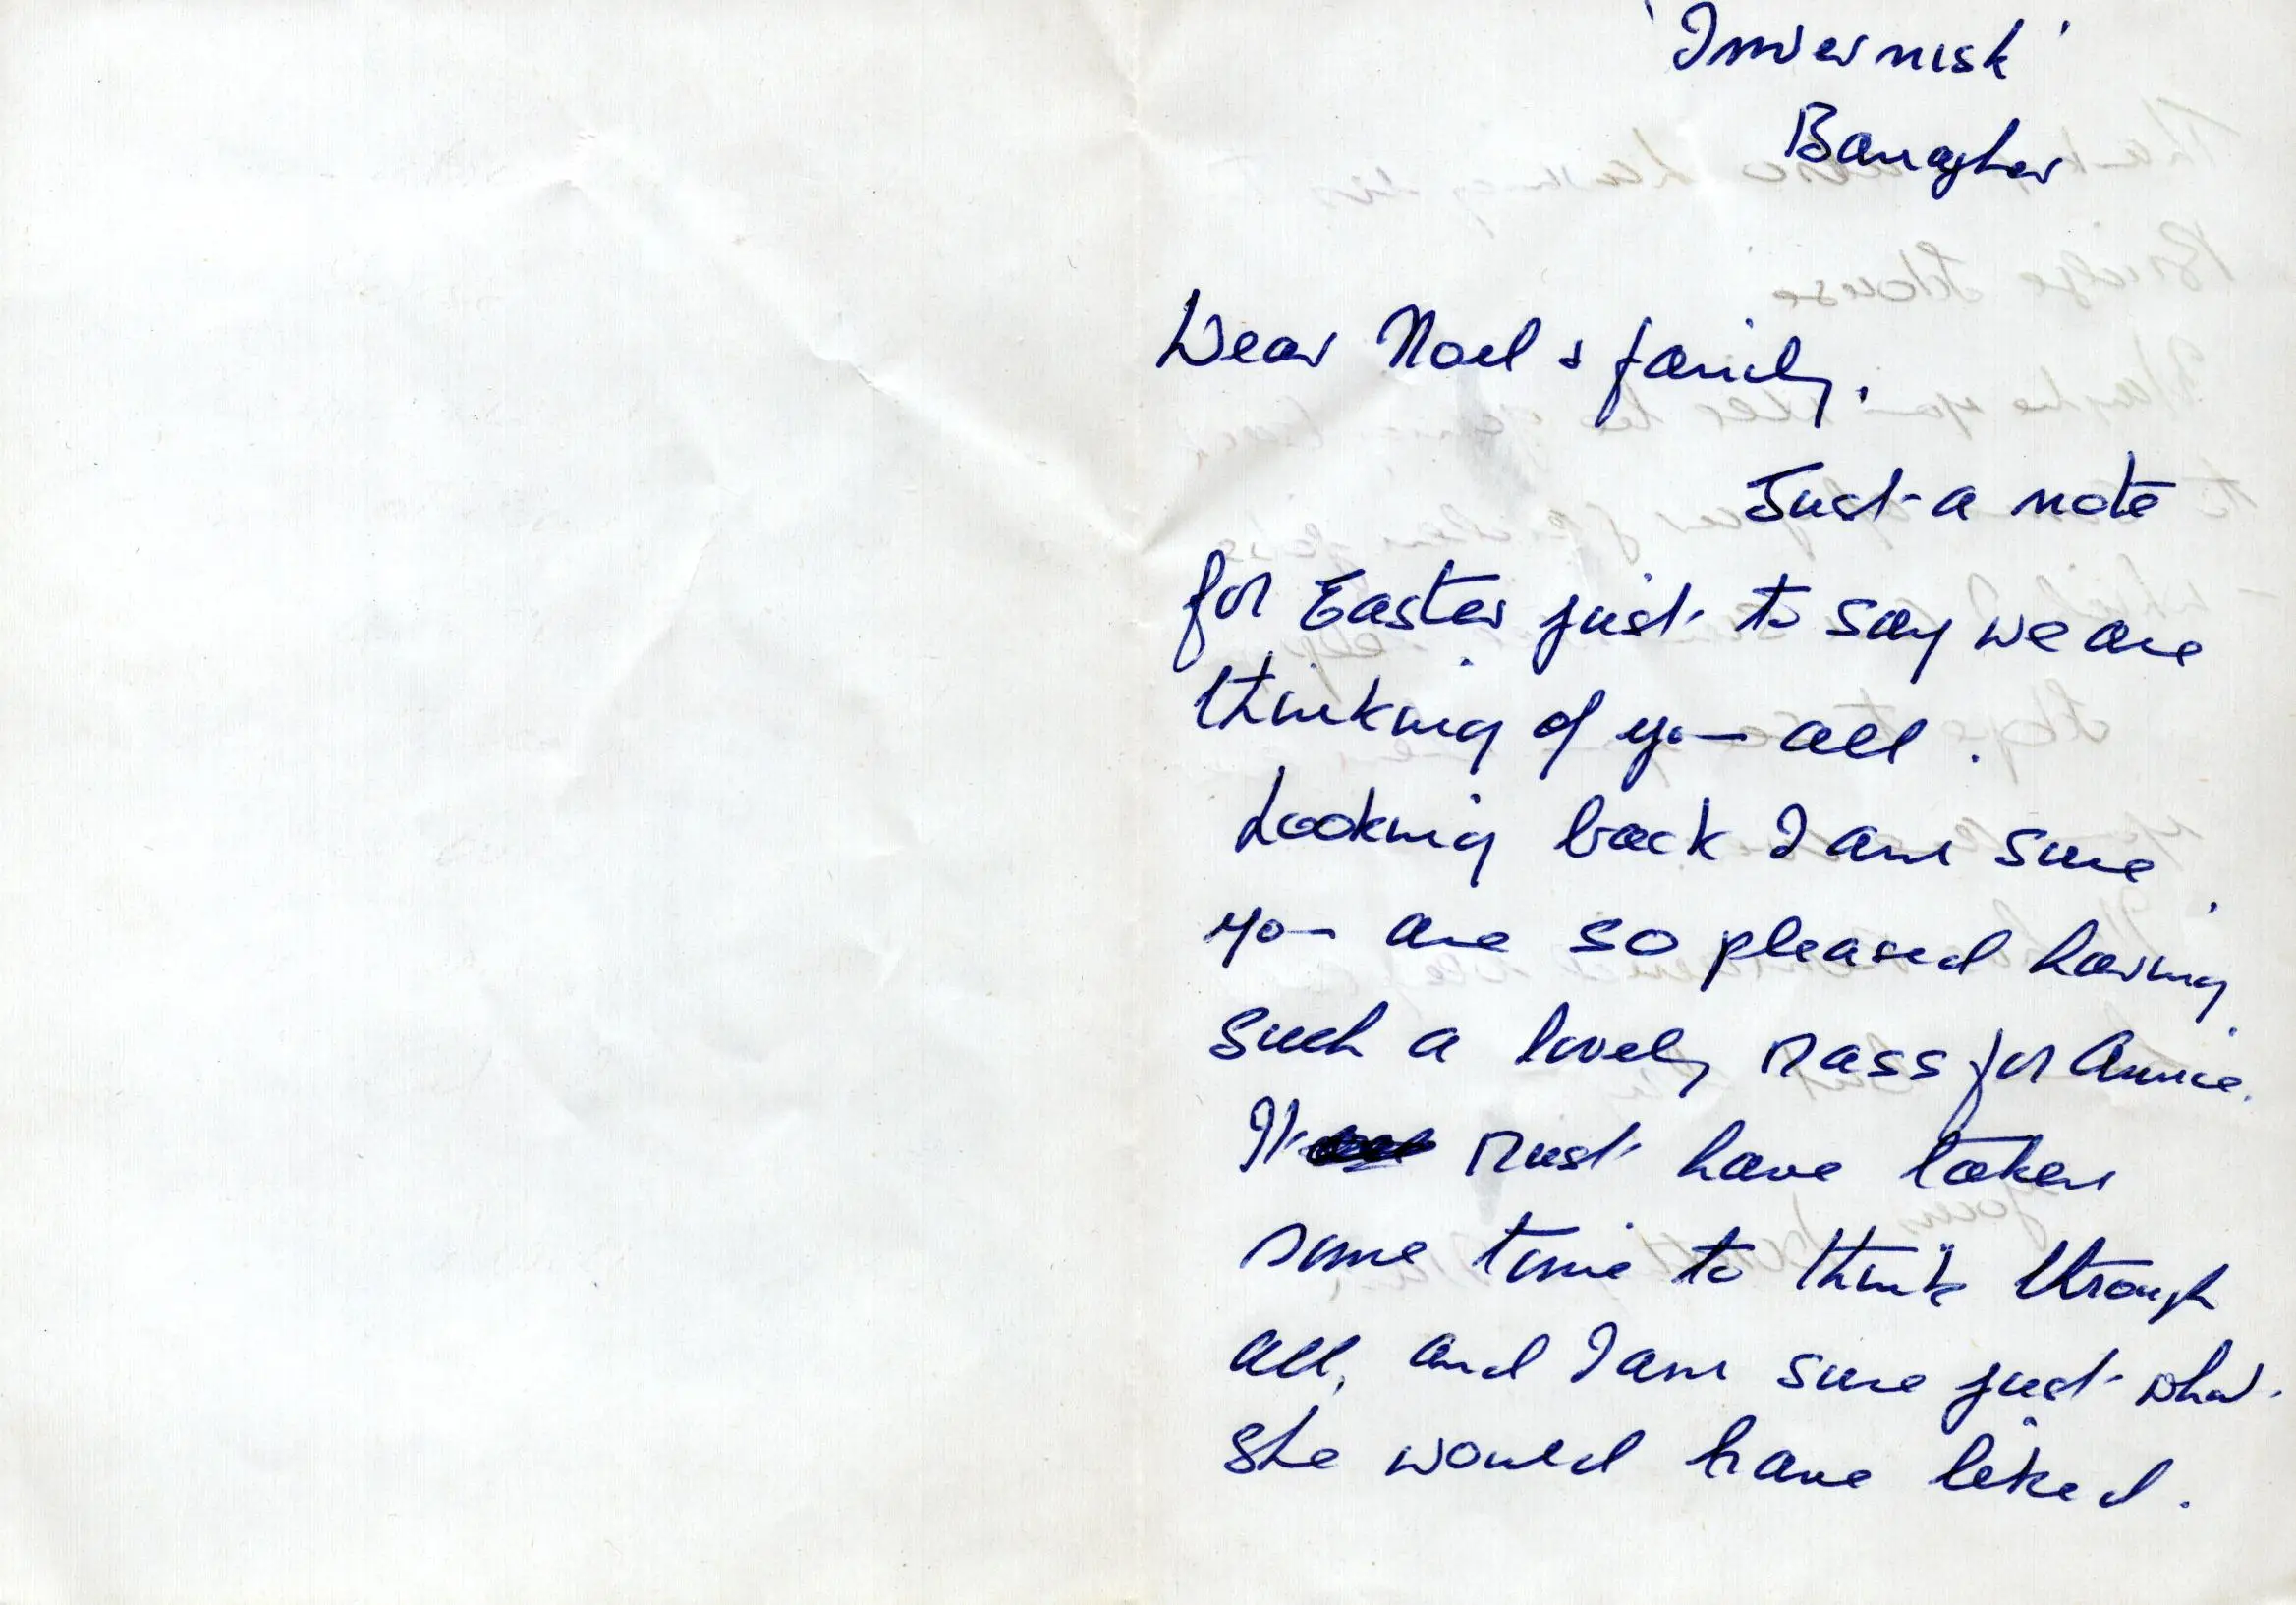 'Invernisk'
Banagher
Dear Noel & family.
Just a note
for Easter just to say we are
thinking of you all.
Looking back I am sure
you are so pleased having
such a lovely Mass for Annie.
It must have taken
some time to think through
all, and I am sure just what
she would have liked.